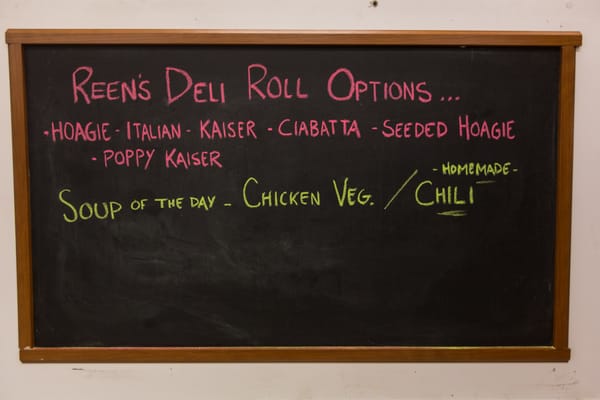 REEN'S DELI ROLL OPTIONS...
-HOAGIE - ITALIAN - KAISER - CIABATTA - SEEDED HOAGIE
- POPPY KAISER
- HOMEMADE -
SOUP OF THE DAY - CHICKEN VEG. / CHILI